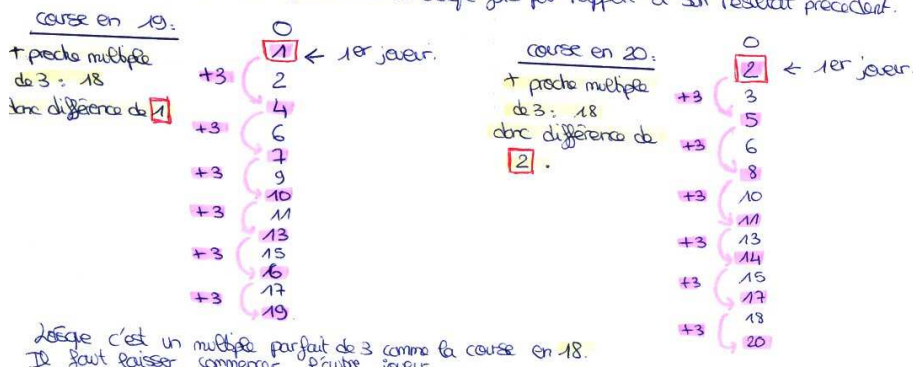 par rapport à son résultat précédent.
course en 19:
+ proche multiple
de 3 : 18
donc différence de 1
0
1 ← 1er joueur.
+3 2
4
+3 6
7
+3 9
10
+3 11
13
+3 15
16
+3 17
19
course en 20:
+ proche multiple
de 3 : 18
donc différence de
2.
0
2 ← 1er joueur.
+3 3
5
+3 6
8
+3 10
11
+3 13
14
+3 15
17
+3 18
20
Lorsque c'est un multiple parfait de 3 comme la course en 18.
Il faut laisser commencer l'autre joueur